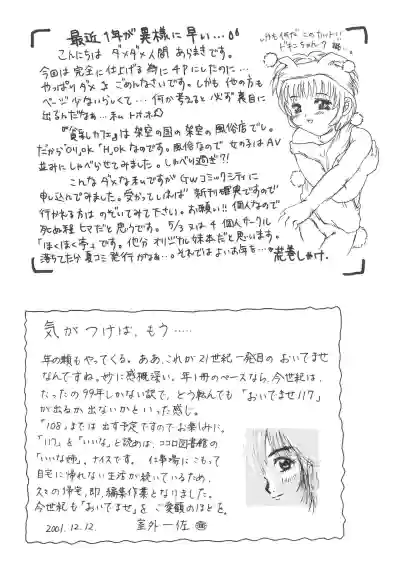 最近1年が異様に早い…
こんにちは ダメダメ人間 あらまきです。
今回は完全に仕上げる為に4Pにしたのに…
やっぱりダメよ ごめんなさいです。しかも他の方も
ページ少ないらしくて…何か考えると必ず裏目に
出るんだなぁ…私 トホホ
カフェ』は架空の国の架空の風俗店でし。
だから"OK"なのです。風俗なので 女の子はAV
並みにしゃべらせてみました。しゃべり過ぎ?!
こんなダメな私ですがGWコミックシティに
申し込んでみました。受かってしまえば 新刊確実ですので
行かれる方は のぞいてみて下さい。お願い!! 個人なので
死ぬ程ヒマだと思うです。5/3 又は4 個人サークル
「ほくほく亭」です。他分オリジナル妹本だと思います。
落ちてたら夏コミ発行かなぁ…。それではよいお年を…
荒巻しゃけ.
しかも何だ このカットは!
気がつけば、もう……
年の瀬もやってくる。ああ、これが21世紀一発目の おいでませ
なんですね。妙に感慨深い。年1冊のペースなら、今世紀は、
たったの99年しかない訳で、どう転んでも「おいでませ117」
が出るか出ないかといった感じ。
「108」までは 出す予定ですのでお楽しみに。
「117」を「いいな」と読めば、ココロ図書館の
「いいな姉」、ナイスです。 仕事場にこもって
自宅に帰れない生活が続いているため、
久々の帰宅、即、編集作業となりました。
今世紀も「おいでませ」を ご愛顧のほどを。
2001.12.12. 室外一佐